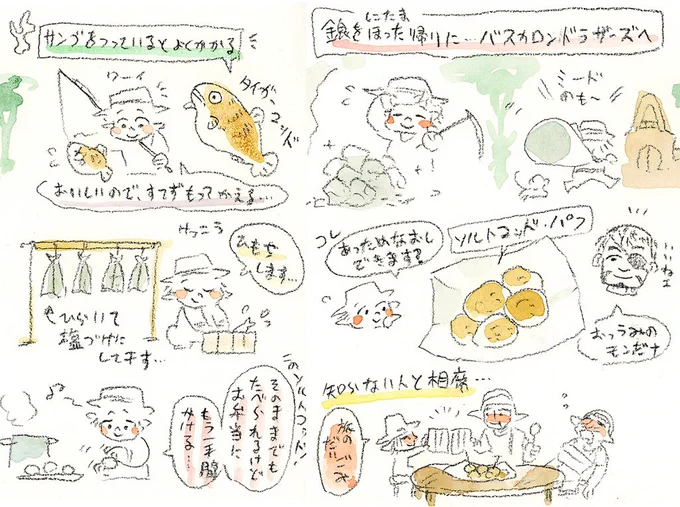 サンゴをつっているとよくかかる
ワーイ
タイガーコッド
おいしいので、すてずもってかえる…
ひもや
します…
ひらいて
塩づけに
してます…
このソルトコッド、
そのままでも
たべられるけど
お弁当に
もう一手間
かける…
しこたま
銀をほった帰りに…バスカロンドラザーズへ
ミード
のも〜
コレ
あっためなおし
できます?
ソルトコッド・パフ
いいねェ
おっうみの
モンだナ
知らない人と相席…
旅の
だいごみ